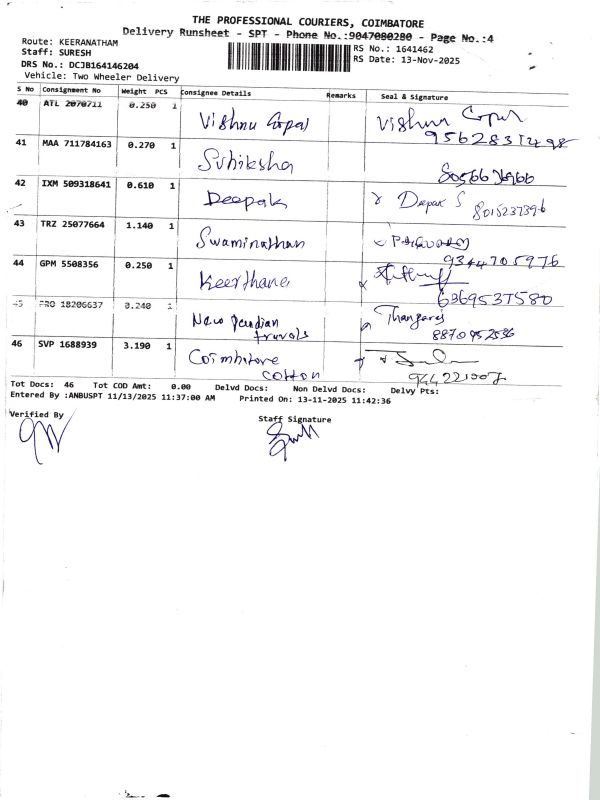 THE PROFESSIONAL COURIERS, COIMBATORE
Delivery Runsheet - SPT - Phone No.:9047080280 - Page No.:4
Route: KEERANATHAM
Staff: SURESH
DRS No.: DCJB164146204
Vehicle: Two Wheeler Delivery
RS No.: 1641462
RS Date: 13-Nov-2025
S No Consignment No Weight PCS Consignee Details Remarks Seal & Signature
40 ATL 2070711 0.250 1 Vishnu Gopal Vishnu Gopal
41 MAA 711784163 0.270 1 Suhiksha
42 IXM 509318641 0.610 1 Deepak Deepak S
8015237396
43 TRZ 25077664 1.140 1 Swaminathan
9344705976
44 GPM 5508356 0.250 1 Keerthana
6369537580
45 PRO 18206637 0.240 1 New Pandian travels Thangaraj
8870952536
46 SVP 1688939 3.190 1 Coimbatore cotton
Tot Docs: 46 Tot COD Amt: 0.00 Delvd Docs: Non Delvd Docs: Delvy Pts:
Entered By :ANBUSPT 11/13/2025 11:37:00 AM Printed On: 13-11-2025 11:42:36
Verified By
Staff Signature